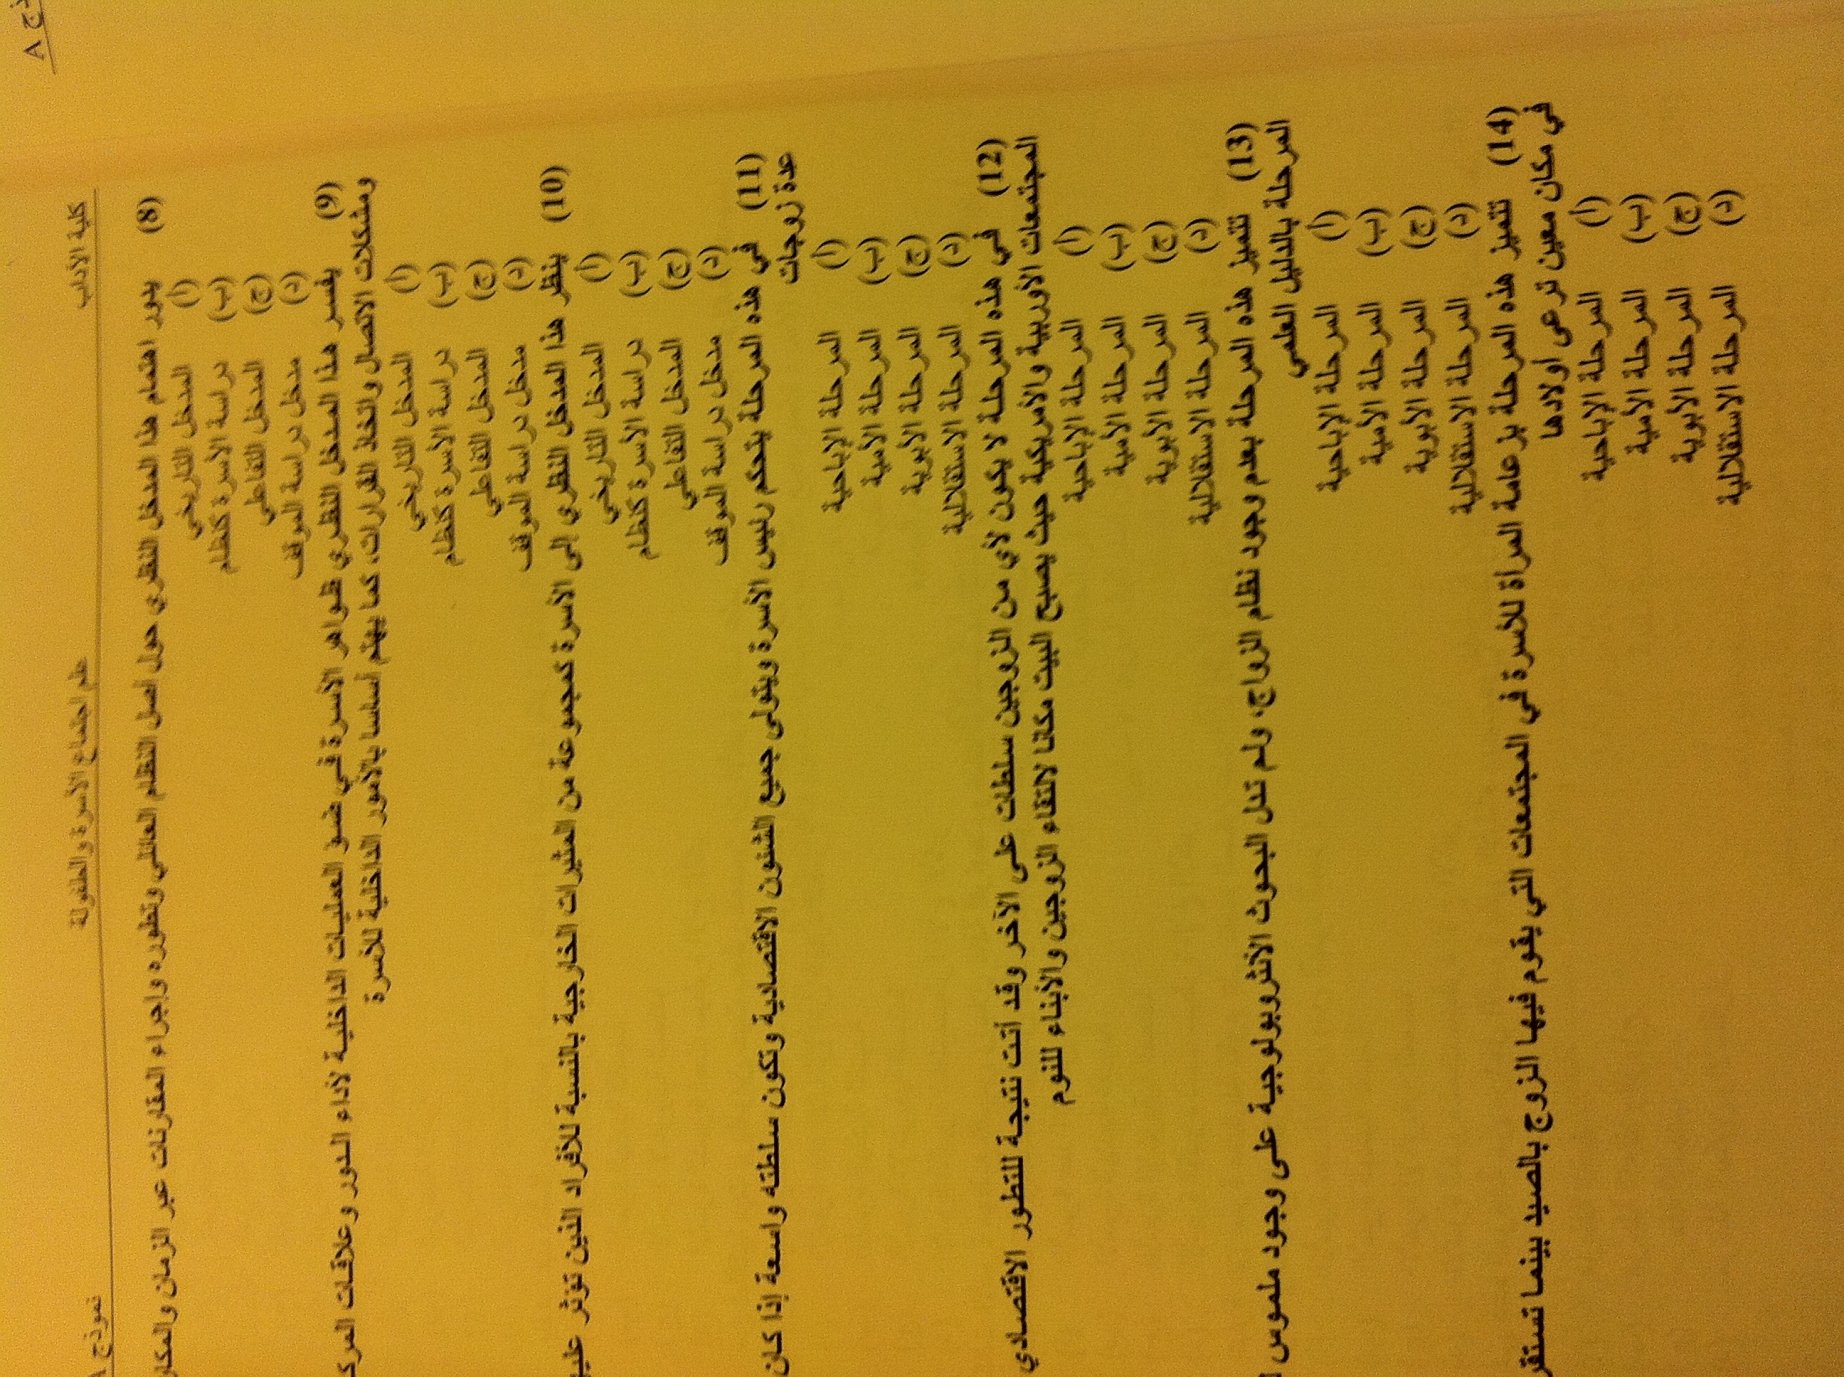 كلية الآداب
علم اجتماع الأسرة والطفولة
نموذج A
(8) يدور اهتمام هذا المدخل النظري حول أصل النظام العائلي وتطوره وإجراء المقارنات عبر الزمان والمكان
(أ) المدخل التاريخي
(ب) دراسة الأسرة كنظام
(ج) المدخل التفاعلي
(د) مدخل دراسة الموقف
(9) يفسر هذا المدخل النظري ظواهر الأسرة في ضوء العمليات الداخلية لأداء الدور وعلاقات
ومشكلات الاتصال واتخاذ القرارات، كما يهتم أساسا بالأمور الداخلية للأسرة
(أ) المدخل التاريخي
(ب) دراسة الأسرة كنظام
(ج) المدخل التفاعلي
(د) مدخل دراسة الموقف
(10) ينظر هذا المدخل النظري إلى الأسرة كمجموعة من المثيرات الخارجية بالنسبة للأفراد الذين تؤثر
(أ) المدخل التاريخي
(ب) دراسة الأسرة كنظام
(ج) المدخل التفاعلي
(د) مدخل دراسة الموقف
(11) في هذه المرحلة يتحكم رئيس الأسرة ويتولى جميع الشئون الاقتصادية وتكون سلطته واسعة إذا كان
عدة زوجات
(أ) المرحلة الإباحية
(ب) المرحلة الأمية
(ج) المرحلة الأبوية
(د) المرحلة الاستقلالية
(12) في هذه المرحلة لا يكون لأي من الزوجين سلطات على الآخر وقد أتت نتيجة للتطور الاقتصادي
المجتمعات الأوربية والأمريكية حيث يصبح البيت مكانا لالتقاء الزوجين والأبناء للنوم
(أ) المرحلة الإباحية
(ب) المرحلة الأمية
(ج) المرحلة الأبوية
(د) المرحلة الاستقلالية
(13) تتميز هذه المرحلة بعدم وجود نظام الزواج، ولم تدل البحوث الأنثروبولوجية على وجود ملموس
المرحلة بالدليل العلمي
(أ) المرحلة الإباحية
(ب) المرحلة الأمية
(ج) المرحلة الأبوية
(د) المرحلة الاستقلالية
(14) تتميز هذه المرحلة بزعامة المرأة للأسرة في المجتمعات التي يقوم فيها الزوج بالصيد بينما تستقر
في مكان معين ترعى أولادها
(أ) المرحلة الإباحية
(ب) المرحلة الأمية
(ج) المرحلة الأبوية
(د) المرحلة الاستقلالية